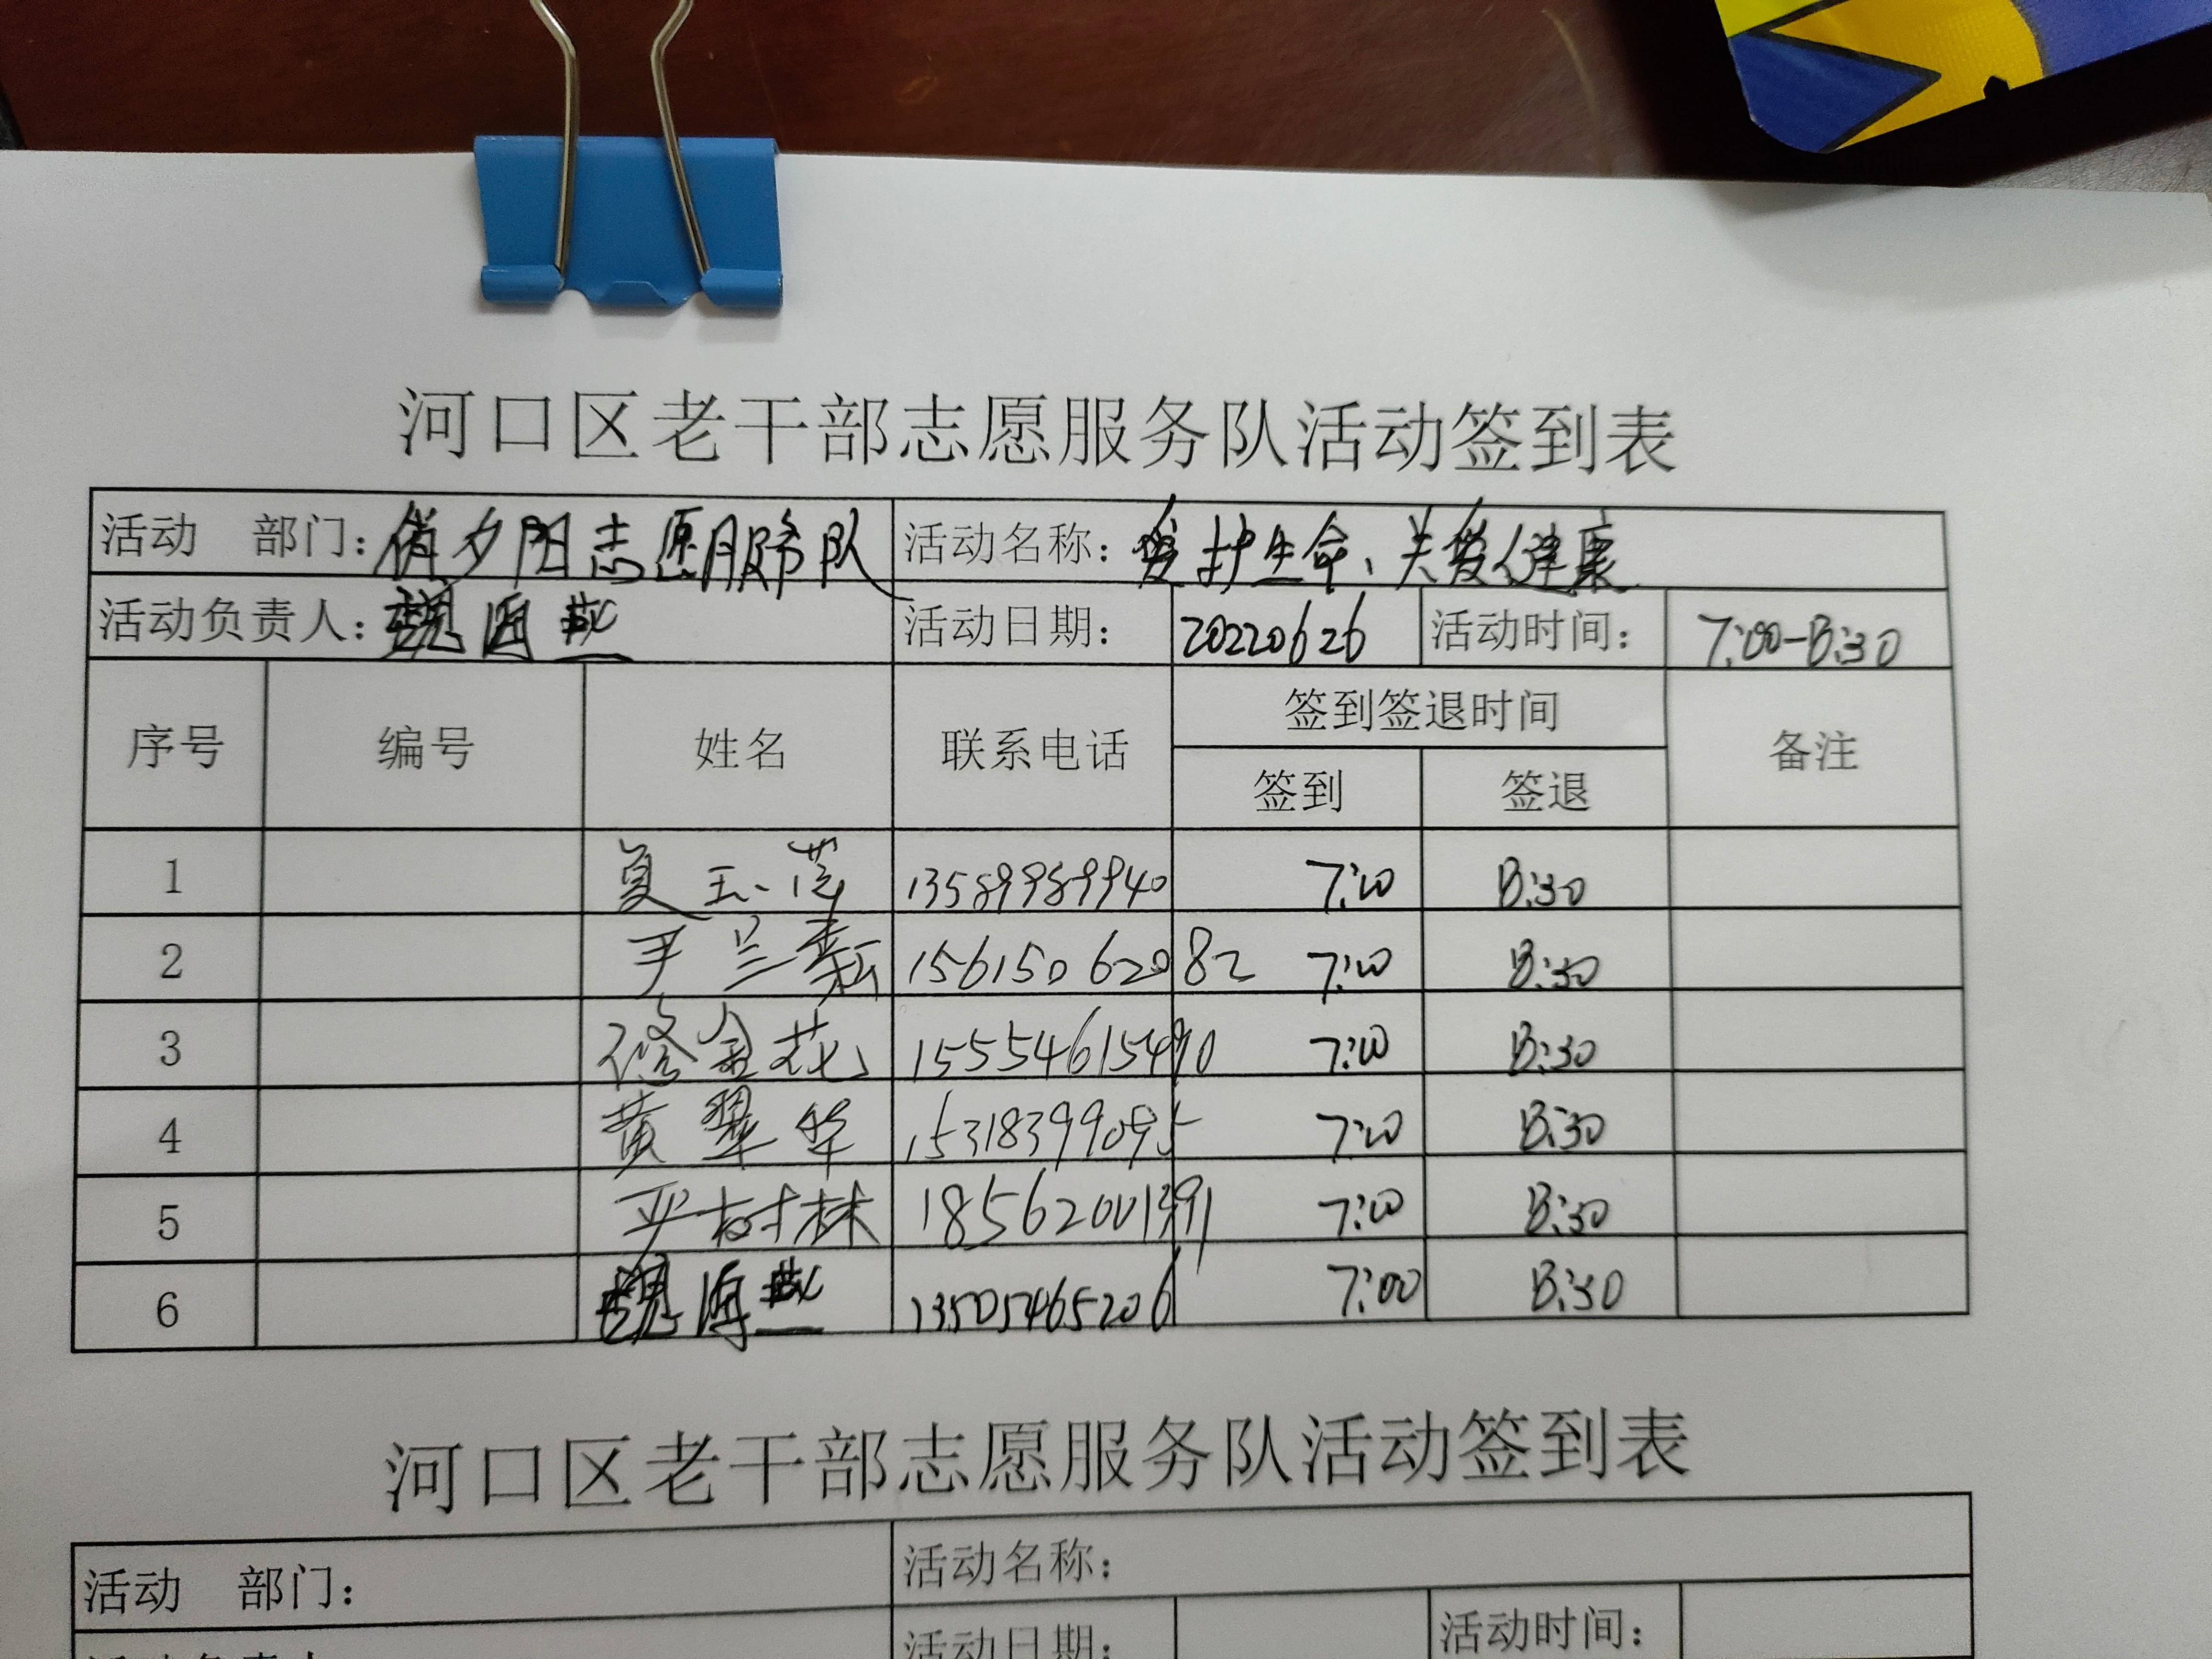 河口区老干部志愿服务队活动签到表
活动 部门：俏夕阳志愿服务队 活动名称：爱护生命、关爱健康
活动负责人：魏海燕 活动日期：20220626 活动时间：7:00-8:30
序号 编号 姓名 联系电话 签到签退时间 备注
签到 签退
1 夏玉莲 13589989940 7:00 8:30
2 兰 15615062082 7:00 8:30
3 修金花 15554615490 7:00 8:30
4 黄翠华 15318399095 7:00 8:30
5 树林 18562001391 7:00 8:30
6 魏海燕 13505465206 7:00 8:30
河口区老干部志愿服务队活动签到表
活动 部门： 活动名称：
活动日期： 活动时间：